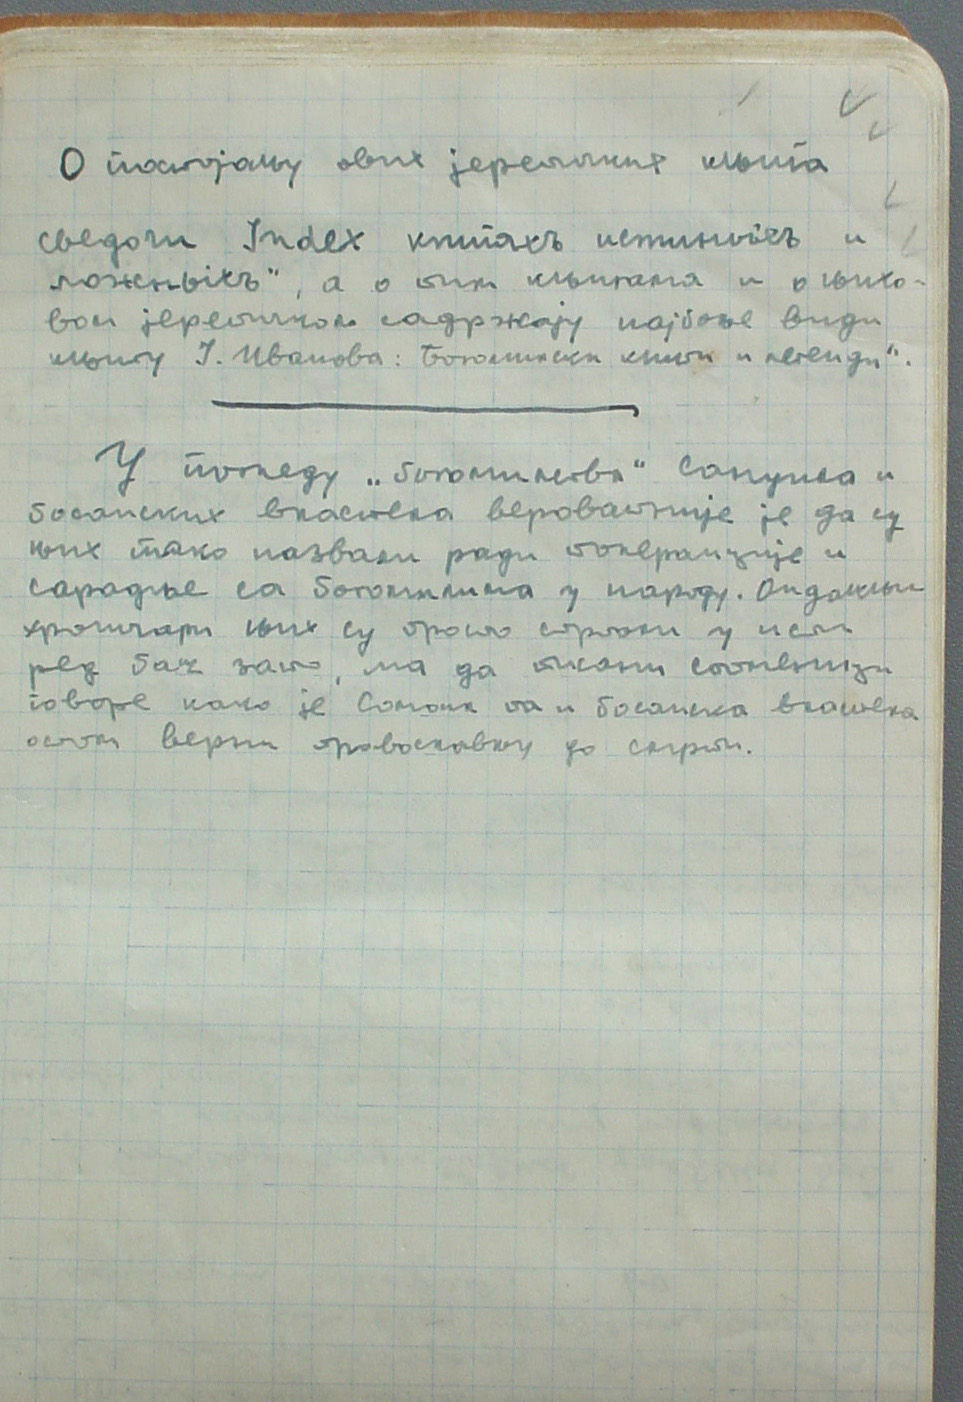 О постојању ових јеретичких књига
сведочи Index книгахъ истинныхъ и
ложныхъ", а о тим књигама и о њихо-
вом јеретичком садржају најбоље види
књигу Ј. Иванова: Богомилски книги и легенди".
У погледу „богомилства" Самуила и
босанских властела вероватније је да су
њих тако назвали ради толеранције и
сарадње са богомилима у народу. Ондашњи
хроничари њих су просто стрпали у исти
ред баш зато, ма да писани споменици
говоре како је Самуил па и босанска властела
остали верни православљу до смрти.